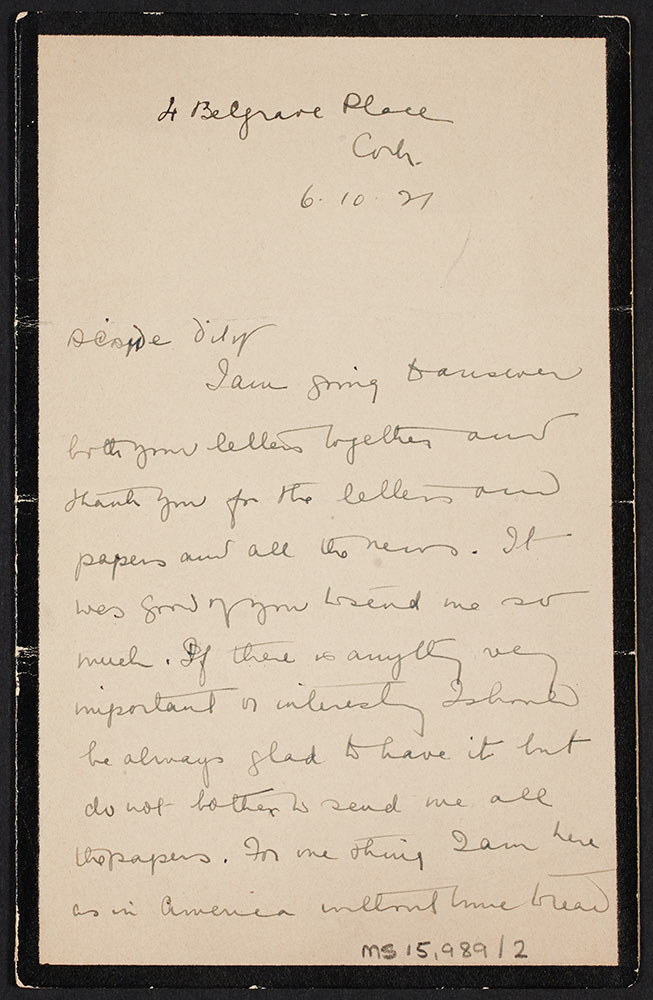 4 Belgrave Place
Cork.
6. 10. 21
I am going to answer
both your letters together and
thank you for the letters and
papers and all the news. It
was good of you to send me so
much. If there is anything very
important or interesting I should
be always glad to have it but
do not bother to send me all
the papers. For one thing I am here
as in America without time to read
MS 15,989/2